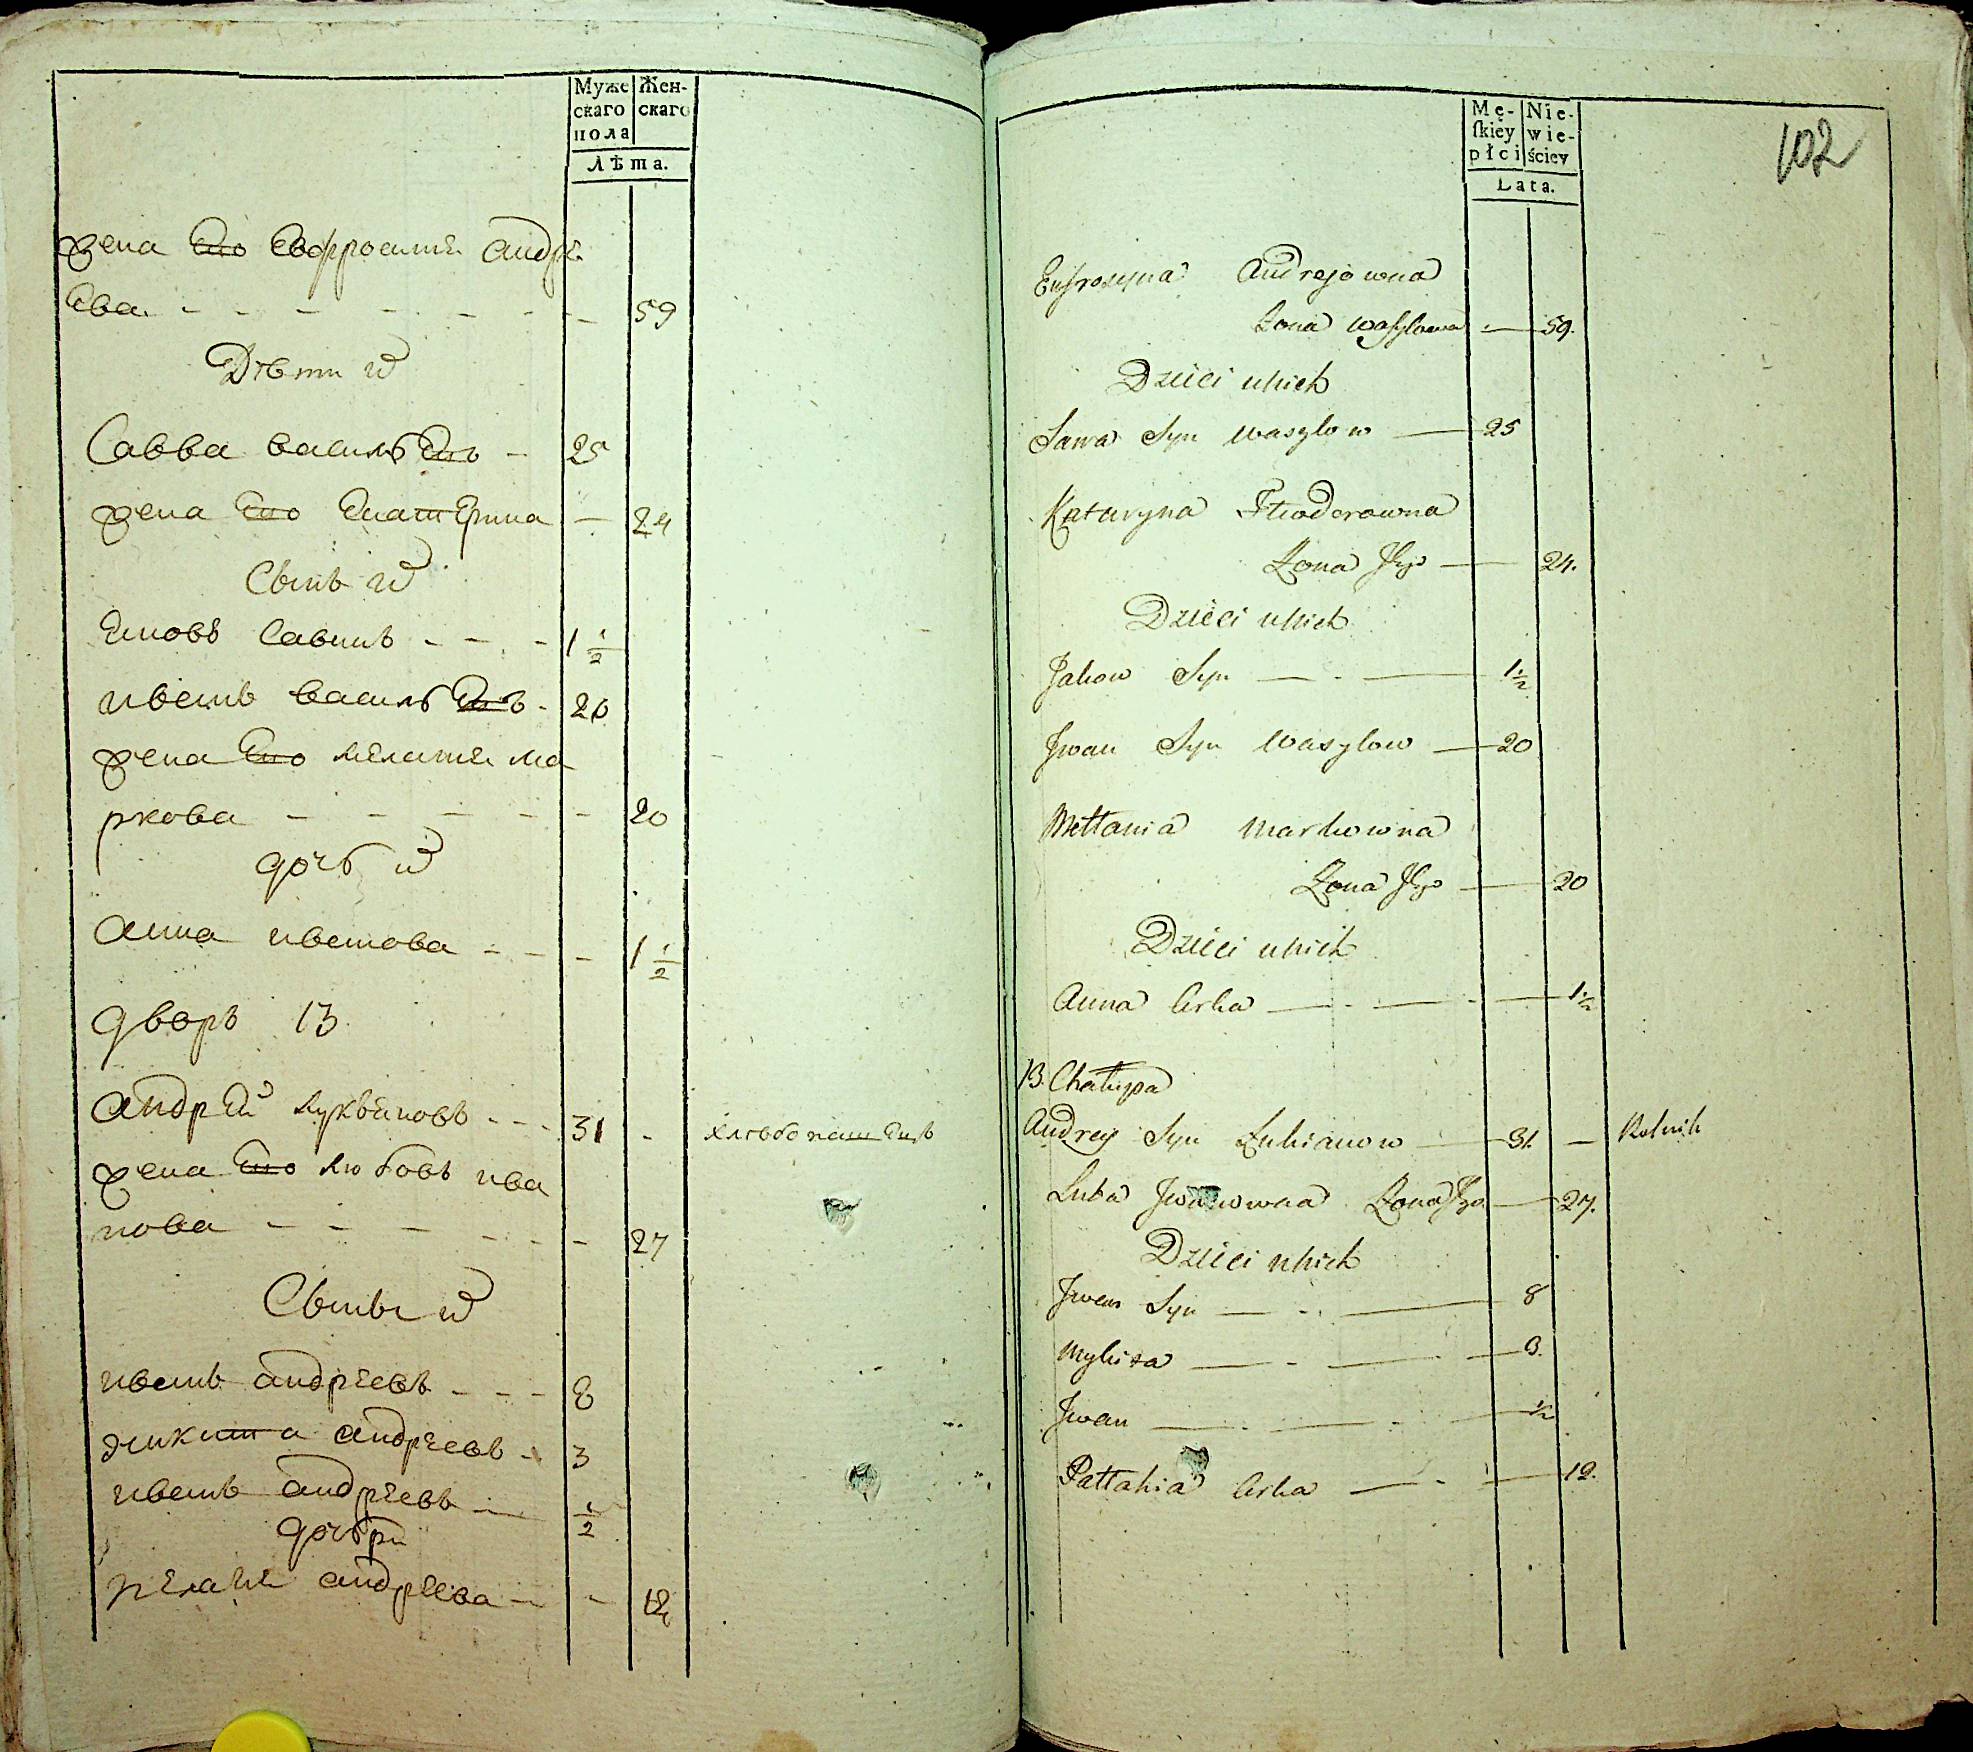 Муже Жен-
скаго скаго
пола
Лѣта.
жена Его Евфросинія андре
ева. - - - - - - - 59
Дѣти их
Савва васильевъ - 25
жена Его Екатерина - 24
Сынъ их
Яковъ Савинъ - - - 1 1/2
иванъ васильевъ - 20
жена Его меланія ма
ркова - - - - - - 20
дочь их
анна иванова - - - 1 1/2
дворъ 13
андрей лукьяновъ - - - 31 - хлѣбопашецъ
жена Его любовь ива
нова - - - - - - - 27
Сыны их
иванъ андреевъ - - - 8
никита андреевъ - 3
иванъ андреевъ - 1/2
дочери
пелагія андреева - - 12
102
Mę- Nie-
ſkiey wie-
płci ściey
Lata.
Eufrosyna Andrejowna
Zona Wasylowa — 59.
Dzieci ich
Sawa Syn Wasylow — 25
Kataryna Fteodorowna
Zona Jego — 24.
Dzieci ich
Jakow Syn — - — 1 1/2
Jwan Syn Wasylow — 20
Mellania Markowna
Zona Jego — 20
Dzieci ich
Anna Corka — - — - — 1 1/2
13. Chałupa
Andrey Syn Łukianow — 31. — Rolnik
Luba Jwanowna Zona Jego — 27.
Dzieci ich
Jwan Syn — - — 8
Mykita — - — - — 3.
Jwan — — - — 1/2
Pallahia Corka — - — 12.